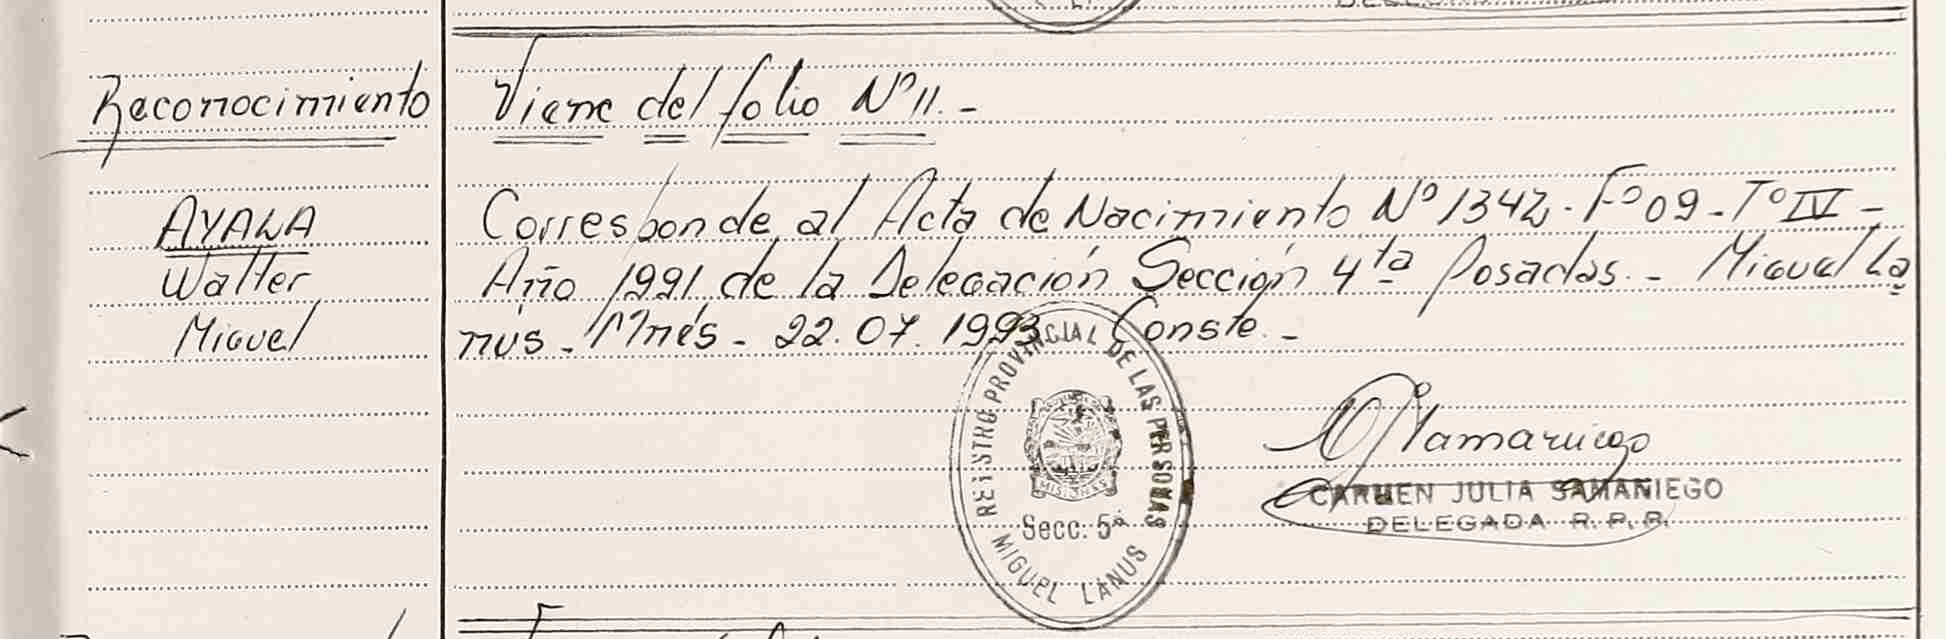 Reconocimiento
Viene del folio Nº 11.-
AYALA
Walter
Miguel
Corresponde al Acta de Nacimiento Nº 1342. Fº 09 - Tº IV -
Año 1991 de la Delegación Sección 4ta Posadas. - Miguel La
nús - Mnés - 22.07.1993 Conste. -
REGISTRO PROVINCIAL DE LAS PERSONAS
MISIONES
Secc. 5ª
MIGUEL LANUS
CARMEN JULIA SAMANIEGO
DELEGADA R. P. P.